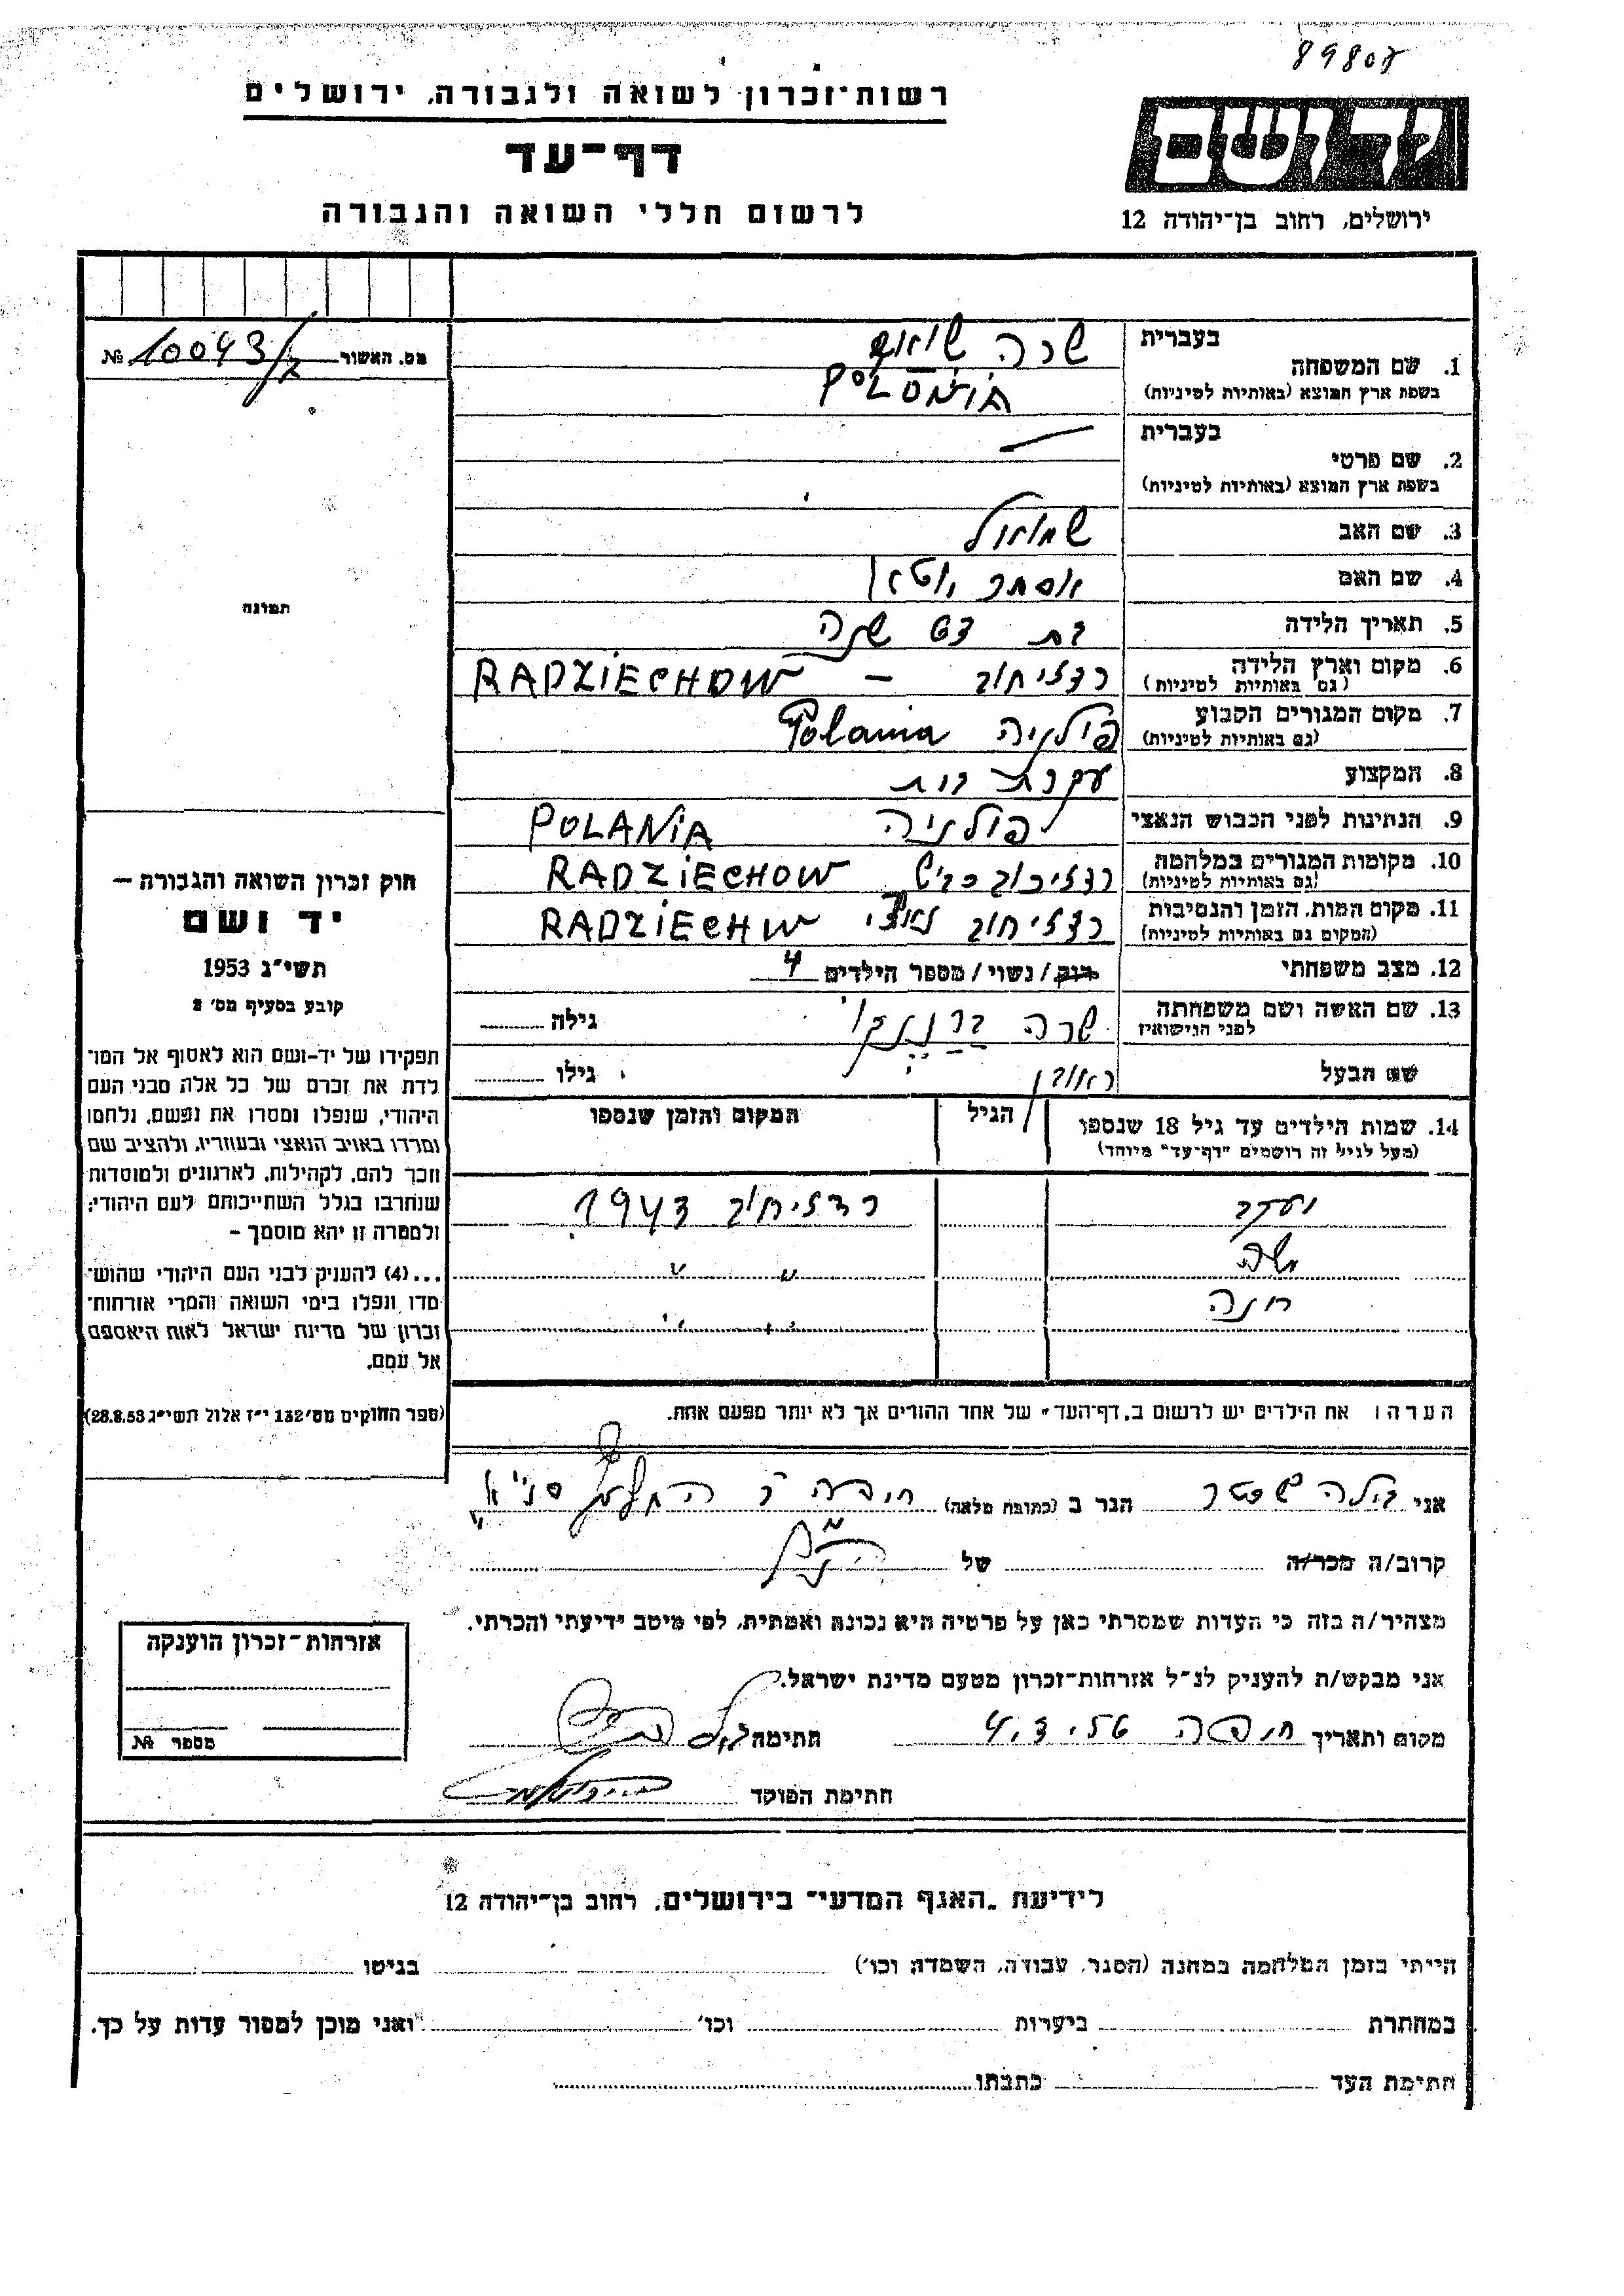 89808
רשות־זכרון לשואה ולגבורה, ירושלים
דף־עד
לרשום חללי השואה והגבורה
יד ושם
ירושלים, רחוב בן־יהודה 12
מס. האשור 10043/ №
בעברית
1. שם המשפחה שרה
בשפת ארץ המוצא (באותיות לטיניות)
בעברית
2. שם פרטי
בשפת ארץ המוצא (באותיות לטיניות)
3. שם האב שמואל
4. שם האם אסתר
5. תאריך הלידה בת שנה
6. מקום וארץ הלידה רדזיחוב – RADZIECHOW
(גם באותיות לטיניות)
7. מקום המגורים הקבוע פולניה Polania
(גם באותיות לטיניות)
8. המקצוע עקרת בית
9. הנתינות לפני הכבוש הנאצי פולניה POLANIA
10. מקומות המגורים במלחמה RADZIECHOW
(גם באותיות לטיניות)
11. מקום המות, הזמן והנסיבות רדזיחוב RADZIECHW
(המקום גם באותיות לטיניות)
12. מצב משפחתי רוק/נשוי/מספר הילדים 4
13. שם האשה ושם משפחתה שרה גילה
לפני הנישואין
שם הבעל ראובן גילו
14. שמות הילדים עד גיל 18 שנספו הגיל המקום והזמן שנספו
(מעל לגיל זה רושמים "דף־עד" מיוחד)
יעקב רדזיחוב 1943
משה " "
חנה " "
הערה: את הילדים יש לרשום ב„דף־העד" של אחד ההורים אך לא יותר מפעם אחת.
תמונה
חוק זכרון השואה והגבורה —
יד ושם
תשי"ג 1953
קובע בסעיף מס' 2
תפקידו של יד־ושם הוא לאסוף אל המו־
לדת את זכרם של כל אלה מבני העם
היהודי, שנפלו ומסרו את נפשם, נלחמו
ומרדו באויב הנאצי ובעוזריו, ולהציב שם
וזכר להם, לקהילות, לארגונים ולמוסדות
שנחרבו בגלל השתייכותם לעם היהודי;
ולמטרה זו יהא מוסמך —
...(4) להעניק לבני העם היהודי שהוש־
מדו ונפלו בימי השואה והמרי אזרחות־
זכרון של מדינת ישראל לאות היאספם
אל עמם.
(ספר החוקים מס' 132 י"ז אלול תשי"ג 28.8.53)
אני הגר ב (כתובת מלאה) חיפה
קרוב/ה מכר/ה של
מצהיר/ה בזה כי העדות שמסרתי כאן על פרטיה היא נכונה ואמתית, לפי מיטב ידיעתי והכרתי.
אני מבקש/ת להעניק לנ"ל אזרחות־זכרון מטעם מדינת ישראל.
מקום ותאריך חיפה 4.3.56 חתימה
חתימת הפוקד
אזרחות־זכרון הוענקה
מספר №
לידיעת „האגף המדעי" בירושלים, רחוב בן־יהודה 12
הייתי בזמן המלחמה במחנה (הסגר, עבודה, השמדה וכו') בגיטו
במחתרת ביערות וכו' ואני מוכן למסור עדות על כך.
חתימת העד כתבתו